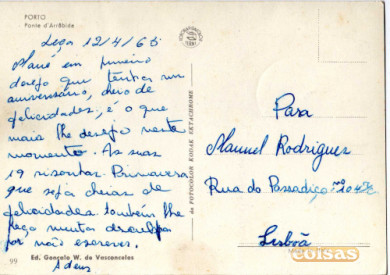 PORTO
Ponte d'Arrábida
Leça 12/4/65
em primeiro
desejo que tenhas um
aniversário, cheio de
felicidades, é o que
mais lhe desejo neste
momento. As suas
19 risonhas Primaveras
que seja cheias de
felicidades também lhe
peço muita desculpa
por não escrever.
Adeus
99
Ed. Gonçalo W. de Vasconcelos
de FOTOCOLOR KODAK EKTACHROME
Para
Manuel Rodrigues
Rua do Passadiço nº 104
Lisboa
coisas